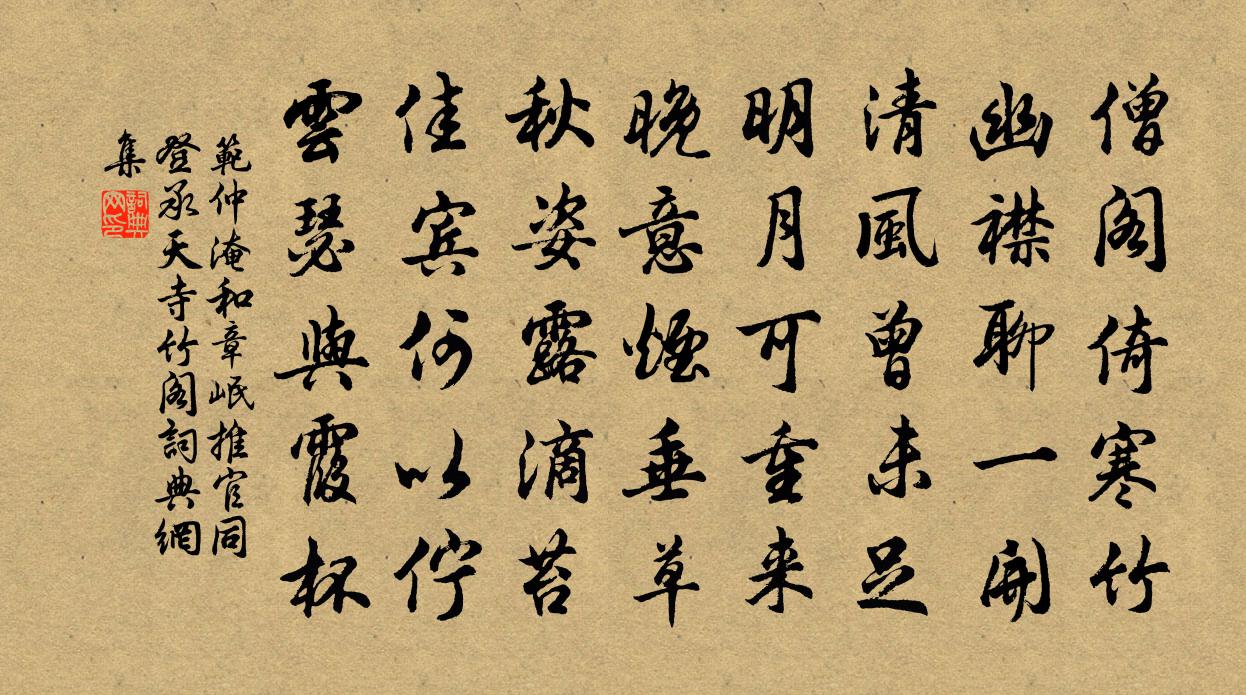 僧阁倚寒竹
幽襟聊一開
清風曾未足
明月可重来
晩意煙垂草
秋姿露滴苔
佳宾何以佇
雲瑟與霞杯
範仲淹和章岷推官同
登承天寺竹阁詞典網
集
詞典网印